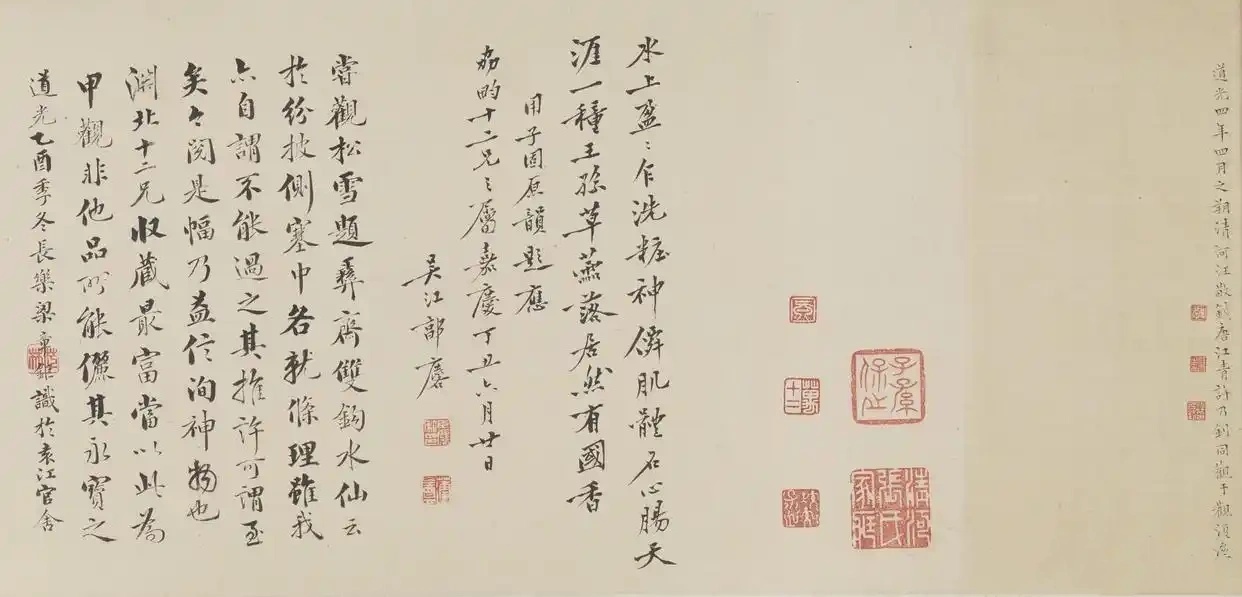 道光四年四月之朔清河汪敬劉唐江青許乃釗同觀于觀
水上盈〻乍洗糚神僲肌體石心腸天
涯一種王孫草蕪落居然有國香
用子固原韻題應
茘畇十二兄〻屬嘉慶丁丑六月廿日
吳江郭麐
嘗觀松雪題彝齋雙鉤水仙云
於紛披側塞中各就條理雖我
亦自謂不能過之其推許可謂至
矣今閱是幅乃益信洵神物也
淵北十二兄收藏最富當以此為
甲觀非他品所能儷其永寶之
道光乙酉季冬長樂梁章鉅識於袁江官舍
子孫保之
清河張氏家
十二